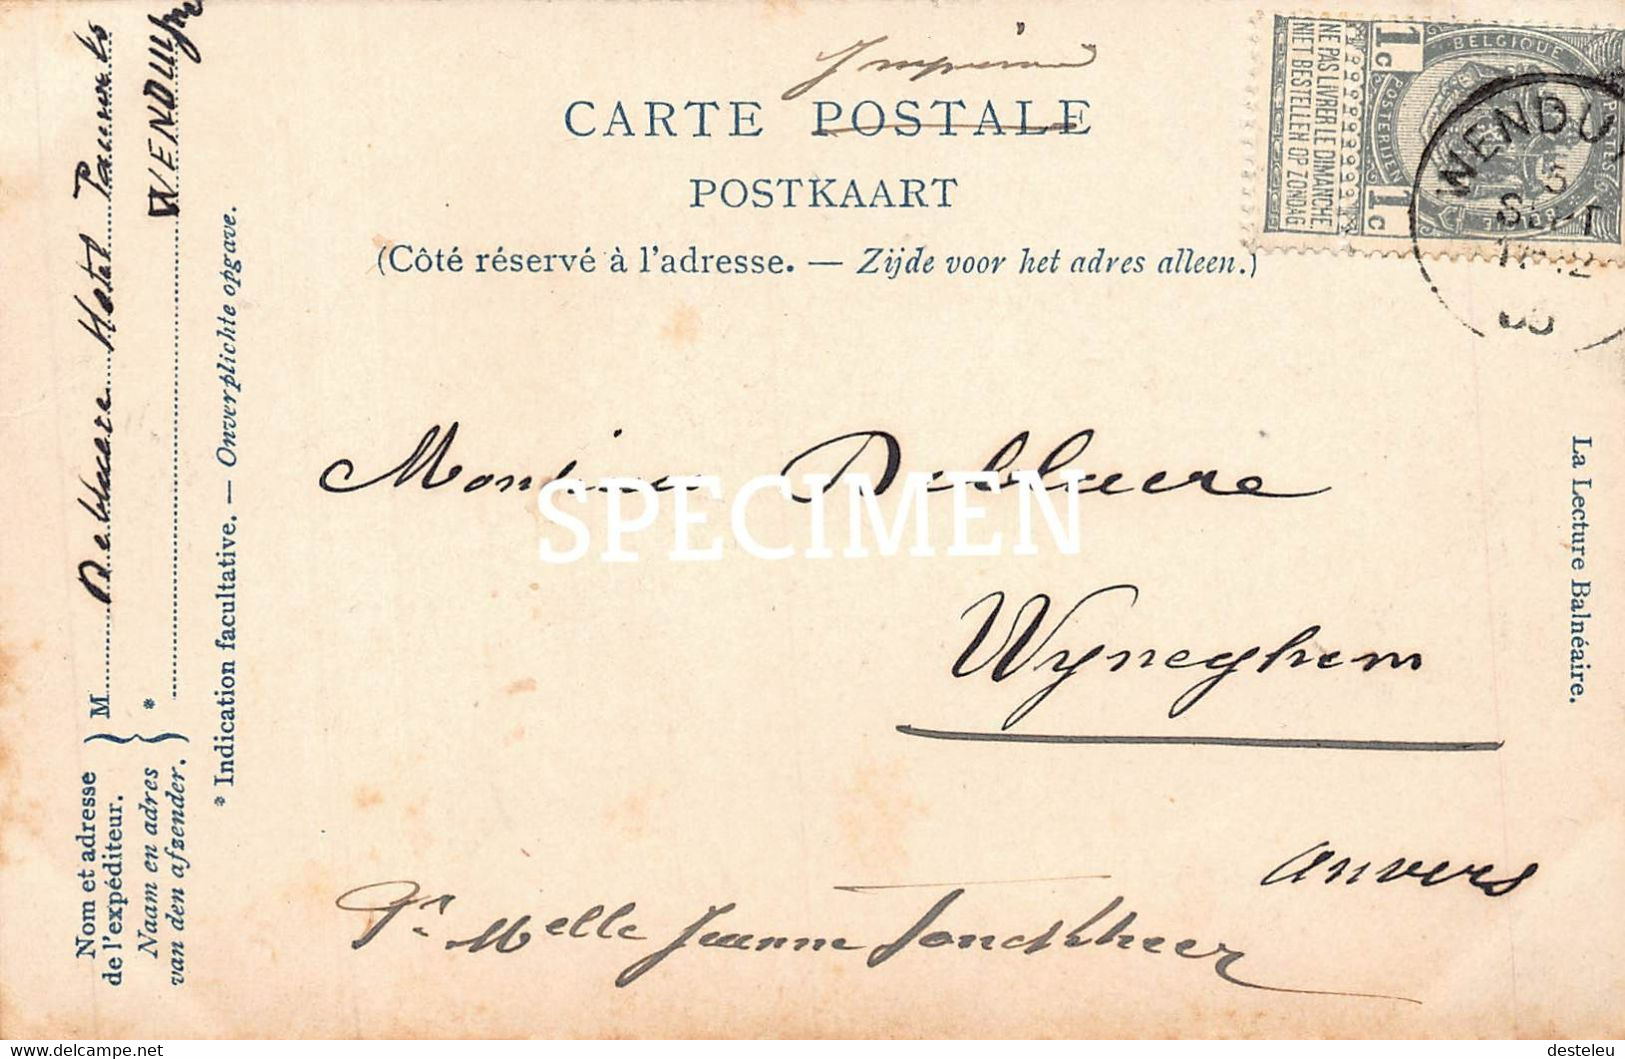 Imprimé
CARTE POSTALE
POSTKAART
(Côté réservé à l'adresse. — Zijde voor het adres alleen.)
BELGIQUE
POSTERIJEN
1c
1c
NE PAS LIVRER LE DIMANCHE
NIET BESTELLEN OP ZONDAG
WENDU
5
SEPT
Monsieur Deblaere
SPECIMEN
Wyneghem
Anvers
Pr Melle Jeanne Jonckheer
La Lecture Balnéaire.
Nom et adresse
de l'expéditeur.
Naam en adres
van den afzender.
M Deblaere Hotel Pauwels
* WENDUYNE
* Indication facultative. — Onverplichte opgave.
Delcampe.net
desteleu